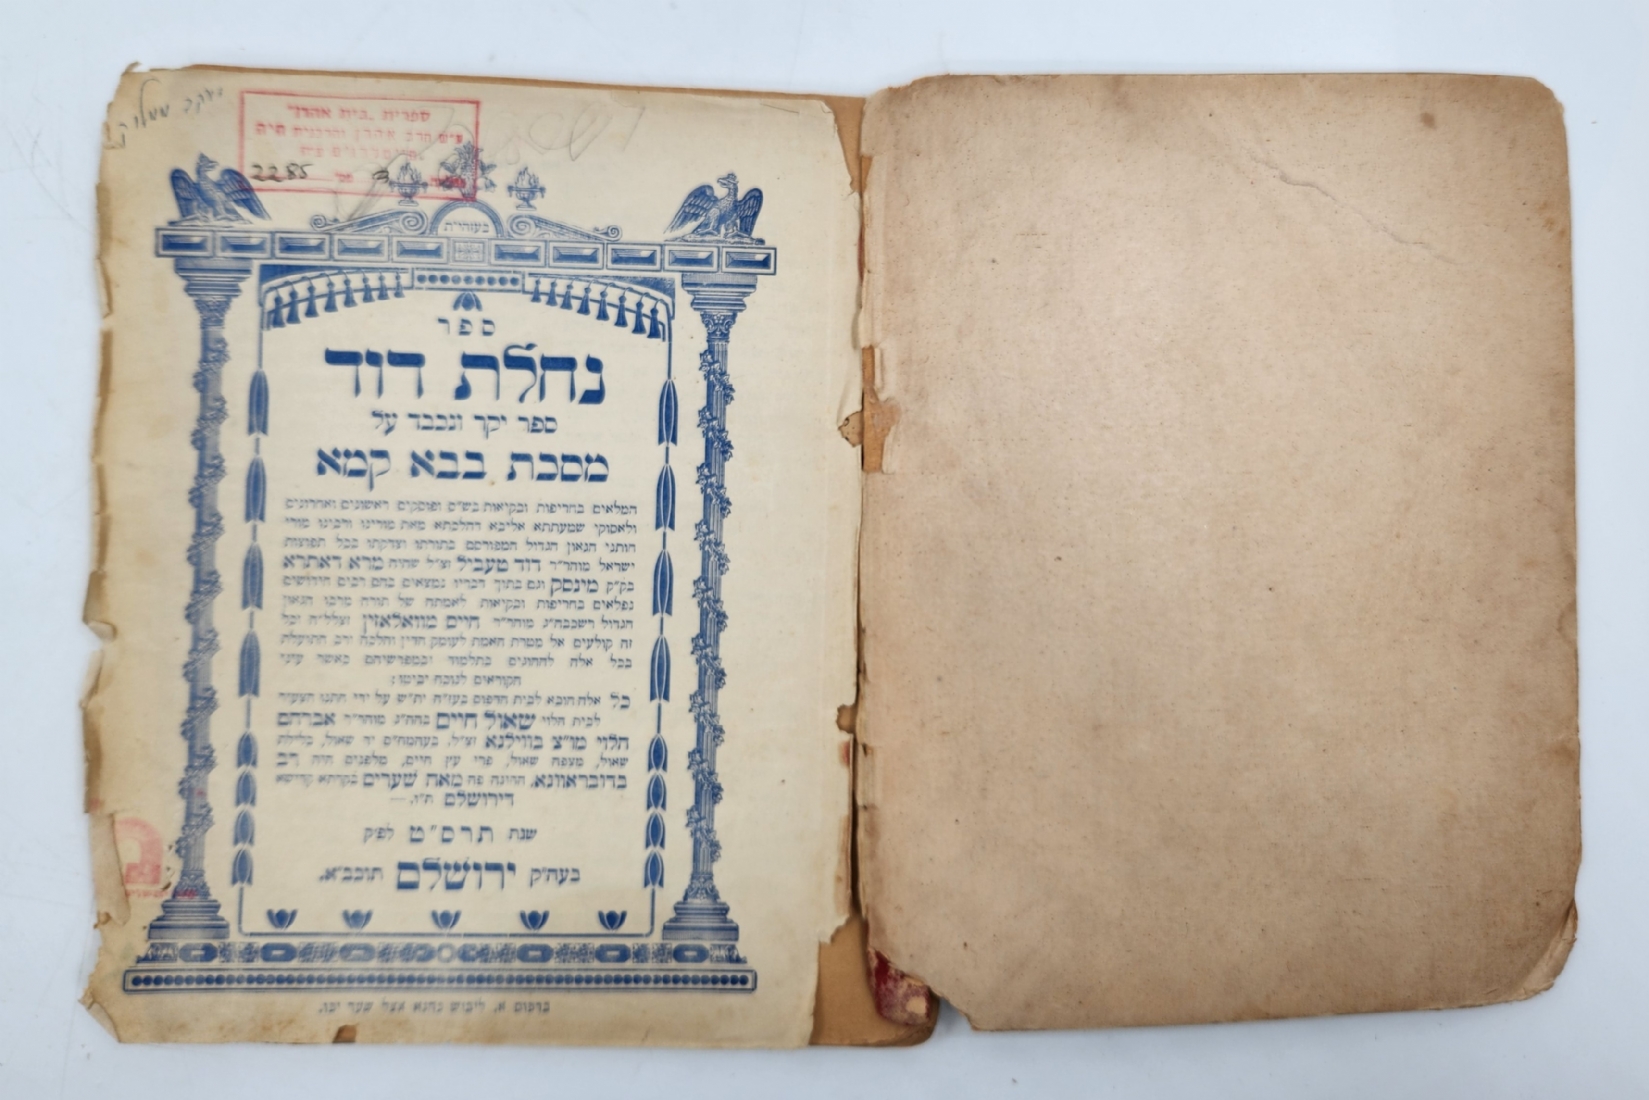 ספרית "בית אהרן"
2285
בעזהי"ת
ספר
נחלת דוד
ספר יקר ונכבד על
מסכת בבא קמא
המלאים בחריפות ובקיאות בש"ס ופוסקים ראשונים ואחרונים
ולאסוקי שמעתתא אליבא דהלכתא מאת מורינו ורבינו מורי
חותני הגאון הגדול המפורסם בתורתו וצדקתו בכל תפוצות
ישראל מוהר"ר דוד טעביל זצ"ל שהיה מרא דאתרא
בק"ק מינסק וגם בתוך דבריו נמצאים בהם רבים חידושים
נפלאים בחריפות ובקיאות לאמתה של תורה מרבו הגאון
הגדול רשכבה"ג מוהר"ר חיים מוואלאזין זצללה"ה וכל
זה קולעים אל מטרת האמת לעומק הדין והלכה ורב התועלת
בכל אלה להחונים בתלמוד ובמפרשיהם כאשר עיני
הקוראים לנוכח יביטו:
כל אלה הובא לבית הדפוס בעז"ה ית"ש על ידי חתנו הצעיר
לבית הלוי שאול חיים בהה"ג מוהר"ר אברהם
הלוי מו"צ בווילנא זצ"ל. בעהמח"ס יד שאול, כלילת
שאול, מצפה שאול, פרי עץ חיים, מלפנים היה רב
בדובראוונא, החונה פה מאה שערים בקרתא קדישא
דירושלם ת"ו. —
שנת תרס"ט לפ"ק
בעה"ק ירושלם תובב"א.
בדפוס א. ליבוש נהנא אצל שער יפו.